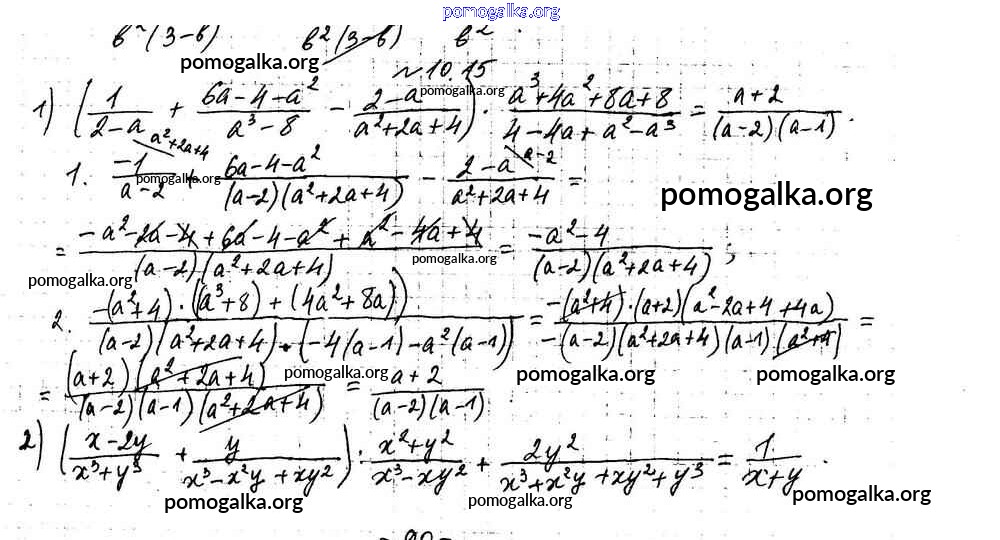 pomogalka.org
в²(3-в) в²(3-в) в²
pomogalka.org
№10.15
1) (1/(2-a) + (6a-4-a²)/(a³-8) - (2-a)/(a²+2a+4)) · (a³+4a²+8a+8)/(4-4a+a²-a³) = (a+2)/((a-2)(a-1)).
pomogalka.org
1. -1/(a-2) (a²+2a+4) + (6a-4-a²)/((a-2)(a²+2a+4)) - (2-a)/(a²+2a+4) (a-2) =
pomogalka.org pomogalka.org
= (-a²-2a-4+6a-4-a²+a²-4a+4)/((a-2)(a²+2a+4)) = (-a²-4)/((a-2)(a²+2a+4));
pomogalka.org pomogalka.org
2. (-(a²+4)·((a³+8)+(4a²+8a)))/((a-2)(a²+2a+4)·(-4(a-1)-a²(a-1))) = (-(a²+4)·(a+2)(a²-2a+4+4a))/(-(a-2)(a²+2a+4)(a-1)(a²+4)) =
= ((a+2)(a²+2a+4))/((a-2)(a-1)(a²+2a+4)) = (a+2)/((a-2)(a-1))
pomogalka.org pomogalka.org pomogalka.org
2) ((x-2y)/(x³+y³) + y/(x³-x²y+xy²)) · (x²+y²)/(x³-xy²) + 2y²/(x³+x²y+xy²+y³) = 1/(x+y).
pomogalka.org pomogalka.org pomogalka.org